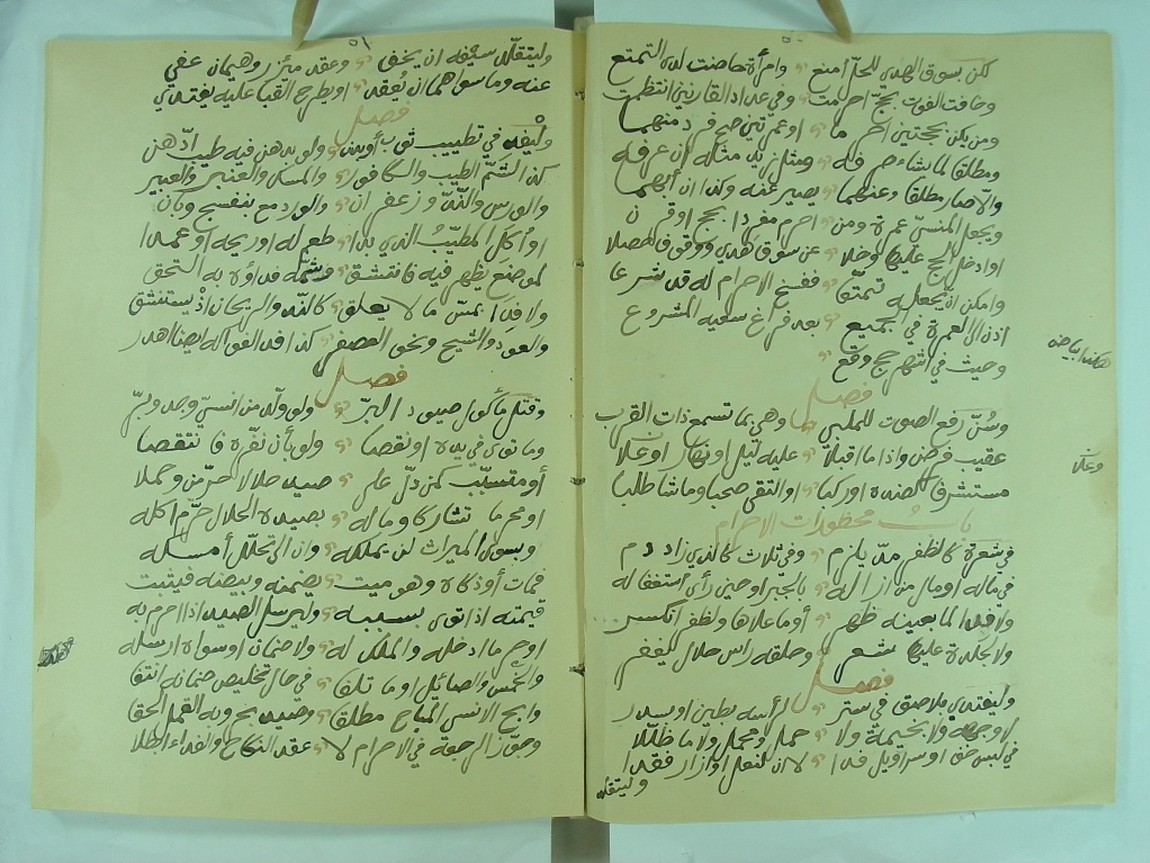 لكن بسوق الهدي للحل امنع وامرأة حاضت لدى التمتع
وخافت الفوت بحج احرمت وفي عداد القارنين انتظمت
ومن يكن بحجتين احرما او عمرتين صح فرد منهما
ومطلقا لما شاء صرفه ومثل زيد مثله ان عرفه
والا صار مطلقا وعنهما يصير عنه وكذا ان ابهما
ويجعل المنسي عمرة ومن احرم مفردا بحج او قرن
او ادخل الحج عليها وخلا عن سوق هدي ووقوف حصلا
وامكن ان يجعله تمتعا ففسخ الاحرام له قد شرعا
اذن الى العمرة في الجميع بعد فراغ سعيه المشروع
وحيث في اشهر حج وقع
هكذا بياض
فصل
وسن رفع الصوت للملبي وهي بما تسمع ذات القرب
عقيب فرض واذا ما اقبلا عليه ليل او نهار او علا
وعلا
مستشرفا او ركبا او التقى صحبا وماشا طلبا
باب محظورات الاحرام
في شعرة كالظفر مد يلزم وفي ثلاث كالذي زاد دم
في ماله او مال من ازاله بالجبر او حين رأى استغفاله
ولا فدا لما بعينه ظهر أو ما علاها ولظفر انكسر
ولا لجلدة عليها شعر وحلقه راس حلال يغفر
فصل
وليفتدي ملاصق في ستر لرأسه بطين او بسدر
لا وجهه ولا بخيمة ولا حمل ومحمل ولا ما ظللا
في لبس خف او سراويل فدا لا ان لنعل او ازار فقدا
وليتقلد
٥١
وليتقلد سيفه ان يخف وعقد مئزر وهميان عفي
عنه وما سواهما ان يعقد او يطرح القبا عليه يفتدي
فصل
وليفد في تطييب ثوب أو بدن ولو بدهن فيه طيب ادهن
كذا الشم الطيب والكافور والمسك والعنبر والعبير
والورس والند وزعفران والورد مع بنفسج وبان
او أكل المطيب الذي بدا طعم له او ريحه او عمدا
لموضع يظهر فيه فانتشق وشمه فداؤه به التحق
ولا فدا بمس ما لا يعلق كالند والريحان اذ يستنشق
والعود والشيح ونحو العصفر كذا فد الفواكه ايضا اهدر
فصل
وقتل مأكول صيود البر ولو تولد من انسي وجد وبر
وما توى في يده او نقصا ولو بأن نفره فانتقصا
أو متسبب كمن دل على صيد حلالا حرمن وحملا
او محرما تشاركا وماله بصيده الحلال حرم اكله
وبسوى الميراث لن يملكه وان الى تحلل أمسكه
فمات أو ذكاه وهو ميت يضمنه وبيضه فيثبت
قيمته اذا توى بسببه وليرسل الصيد اذا احرم به
او حرما ادخله والملك له ولا ضمان لو سواه ارسله
والخمس والصائل او ما تلفا في حال تخليص ضمانه انتفا
وابح الانسي المباح مطلقا وصيد بحر وبه القمل الحقا
وجوز الرجعة في الاحرام لا عقد النكاح والفداء ابطلا